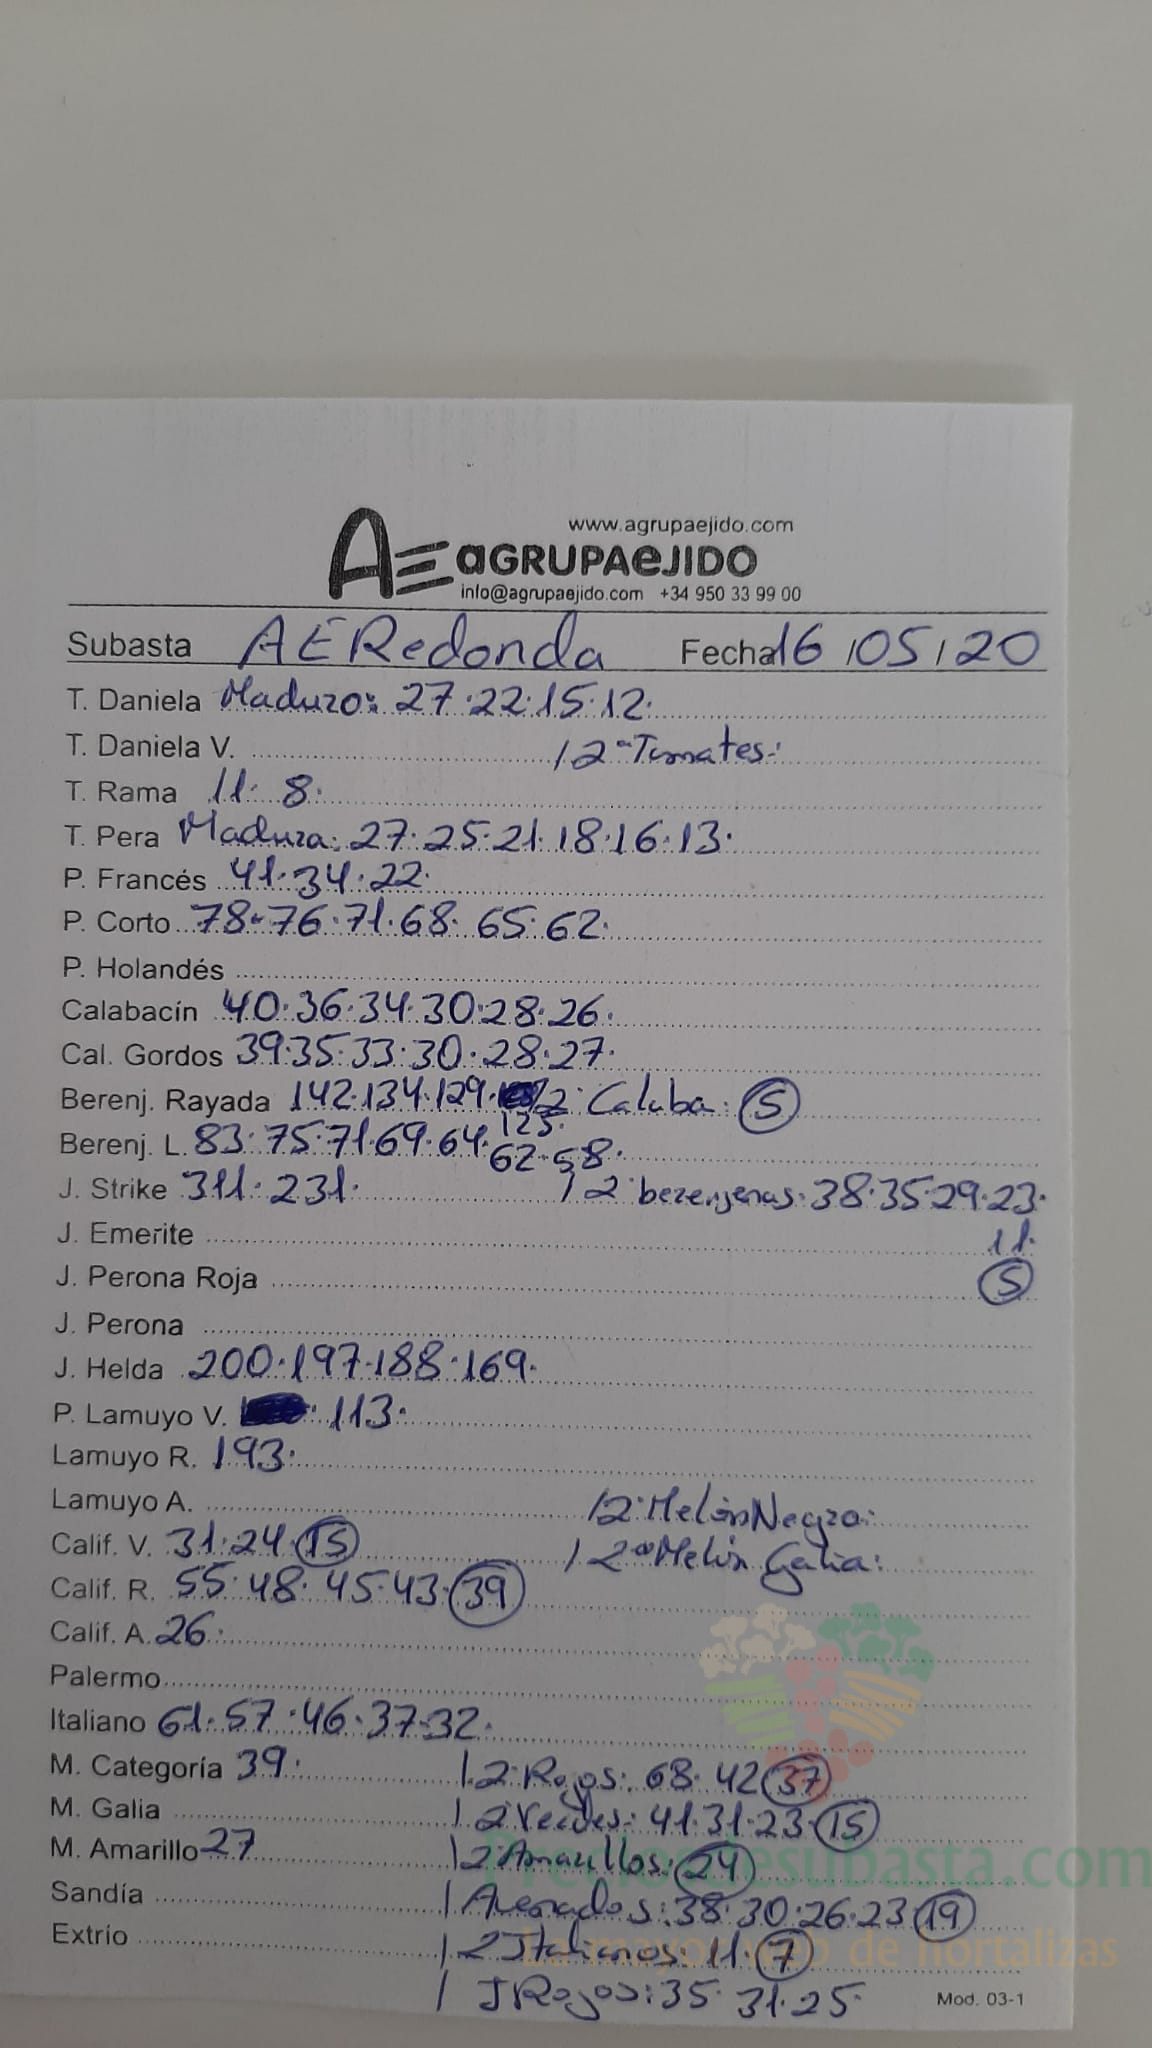 www.agrupaejido.com
AE aGRUPAeJIDO
info@agrupaejido.com +34 950 33 99 00
Subasta AE Redonda Fecha 16/05/20
T. Daniela Maduro: 27.22.15.12.
T. Daniela V. / 2ª Tomates:
T. Rama 11. 8.
T. Pera Madura: 27.25.21.18.16.13.
P. Francés 41.34.22.
P. Corto 78.76.71.68.65.62.
P. Holandés
Calabacín 40.36.34.30.28.26.
Cal. Gordos 39.35.33.30.28.27.
Berenj. Rayada 142.134.129. /2ª Calaba: 5
125.
Berenj. L. 83.75.71.69.64.
62.58.
J. Strike 311.231. / 2ª berenjenas: 38.35.29.23.
J. Emerite 11.
J. Perona Roja 5
J. Perona
J. Helda 200.197.188.169.
P. Lamuyo V. 113.
Lamuyo R. 193.
Lamuyo A. /2ª Melón Negro:
Calif. V. 31.24.15 / 2ª Melón Galia:
Calif. R. 55.48.45.43.39
Calif. A. 26.
Palermo
Italiano 61.57.46.37.32.
M. Categoría 39. /2ª Rojos: 68.42 37
M. Galia /2 Verdes: 41.31.23.15
M. Amarillo 27 /2 Amarillos: 24
Preciosdesubasta.com
Sandía / Asurados: 38.30.26.23 19
Extrío /2 Italianos: 11. 7
La mayor web de hortalizas
/ J Rojos: 35. 31.25. Mod. 03-1